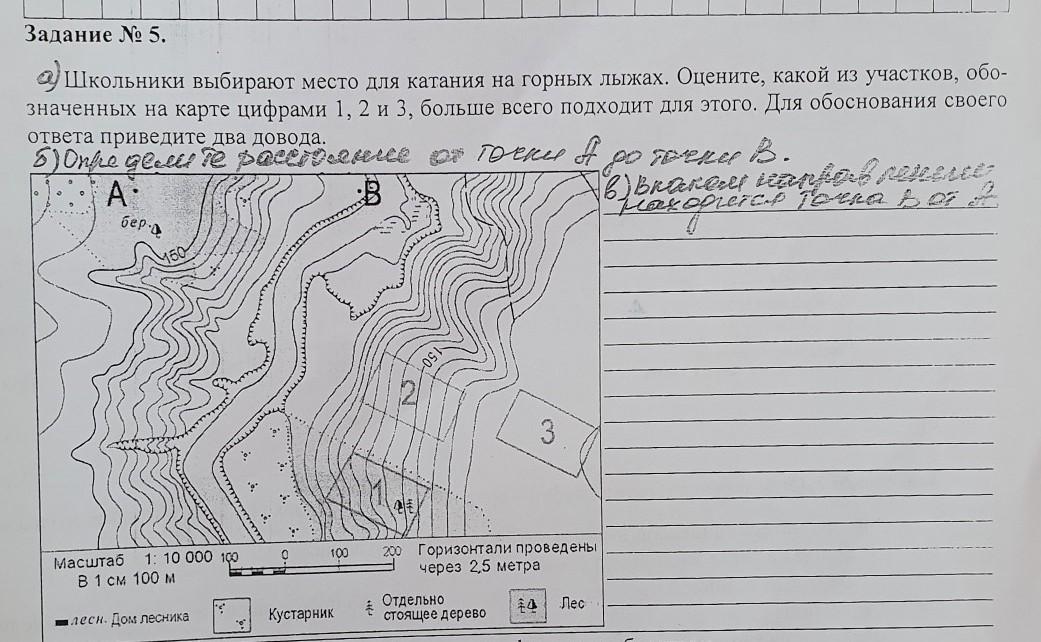 Задание № 5.
а) Школьники выбирают место для катания на горных лыжах. Оцените, какой из участков, обо-
значенных на карте цифрами 1, 2 и 3, больше всего подходит для этого. Для обоснования своего
ответа приведите два довода.
б) Определите расстояние от точки А до точки В.
в) В каком направлении
находится точка В от А
А
В
бер.
150
150
2
3
1
Масштаб 1: 10 000
В 1 см 100 м
100 0 100 200
Горизонтали проведены
через 2,5 метра
лесн. Дом лесника
Кустарник
Отдельно
стоящее дерево
Лес